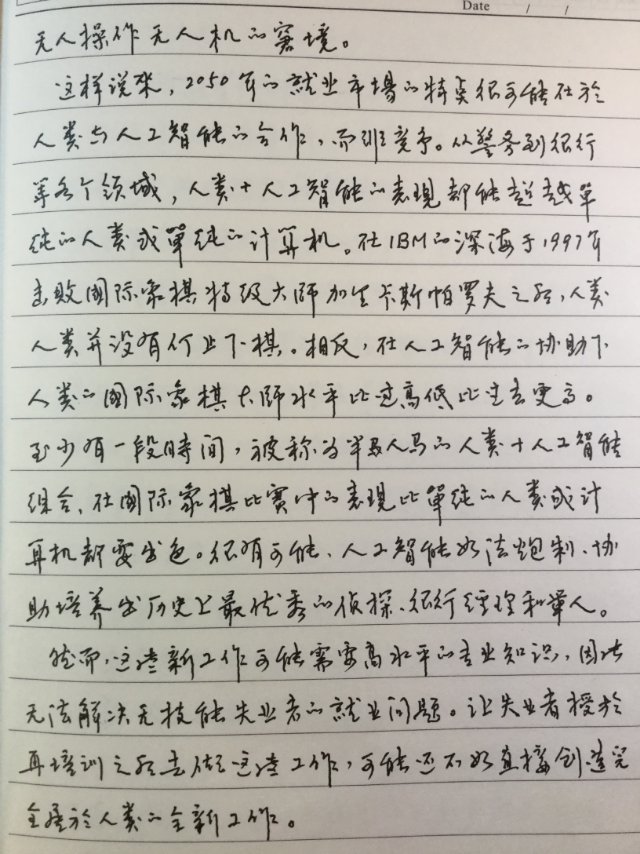 Date / /
无人操作无人机的窘境。
这样说来，2050年的就业市场的特点很可能在於
人类与人工智能的合作，而非竞争。从警务到银行
等各个领域，人类+人工智能的表現都能超越單
纯的人类或單纯的计算机。在IBM的深海于1997年
击败国际象棋特级大師加里卡斯帕罗夫之后，人类
人类并没有停止下棋。相反，在人工智能的协助下
人类的国际象棋大師水平比过高低比过去更高。
至少有一段時间，被称为半人马的人类+人工智能
组合，在国际象棋比赛中的表現比單纯的人类或计
算机都要出色。很有可能，人工智能如法炮制，协
助培养出历史上最优秀的侦探、银行经理和軍人。
然而，这些新工作可能需要高水平的专业知识，因此
无法解决无技能失业者的就业问题。让失业者接於
再培训之后去做这些工作，可能还不如直接创造完
全屬於人类的全新工作。